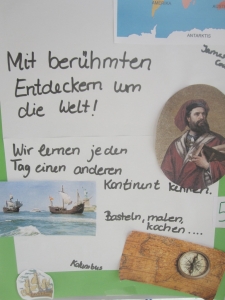 ANTARKTIS
Mit berühmten
Entdeckern um
die Welt!
Wir lernen jeden
Tag einen anderen
Kontinent kennen.
Basteln, malen,
kochen....
Kolumbus